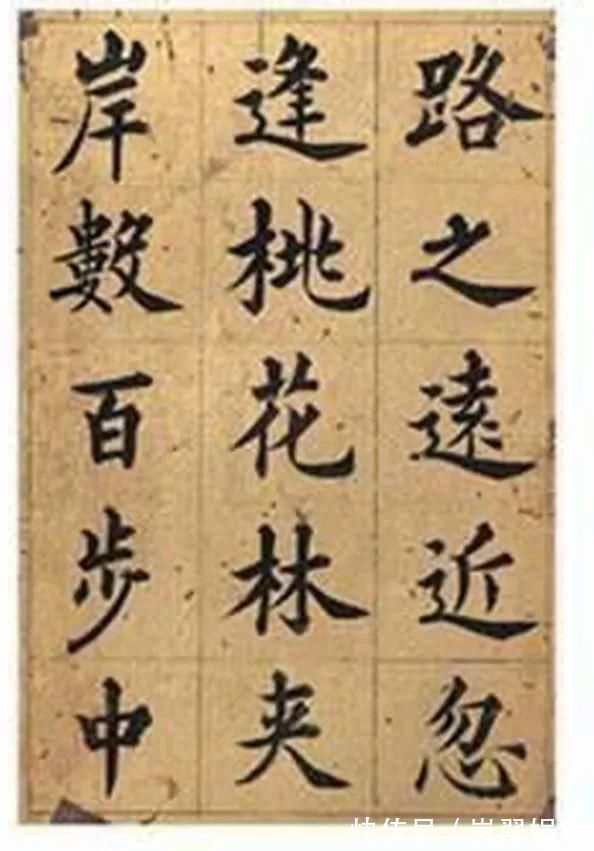 路之遠近忽
逢桃花林夾
岸數百步中